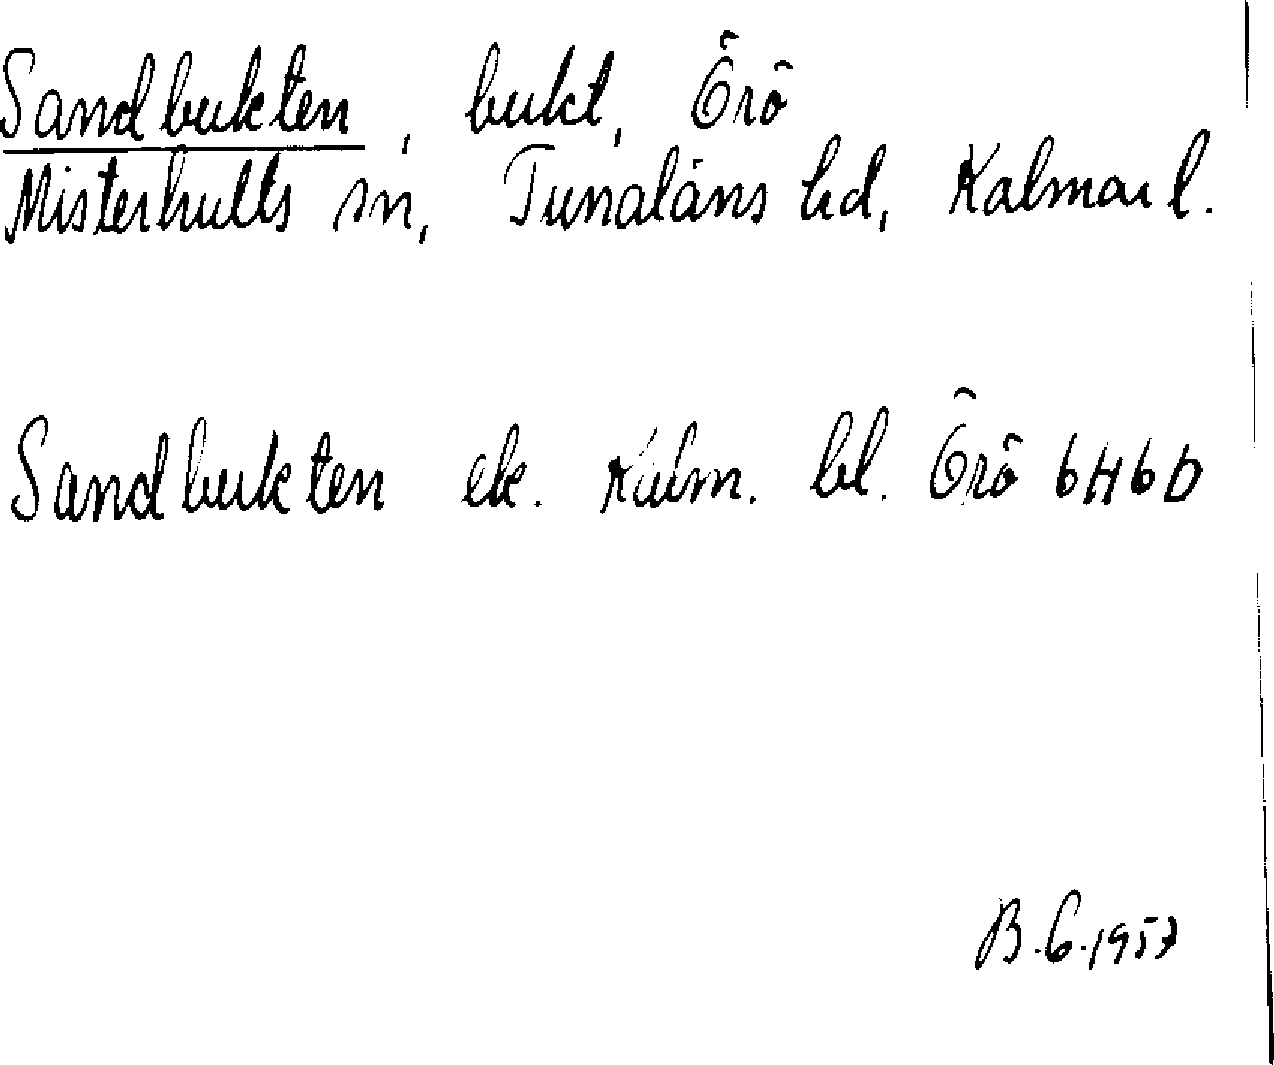 Sandbukten, bukt, Örö
Misterhults sn, Tunaläns hd, Kalmar l.
Sandbukten ek. Kalm. bl. Örö 6H6b
B.G.1957